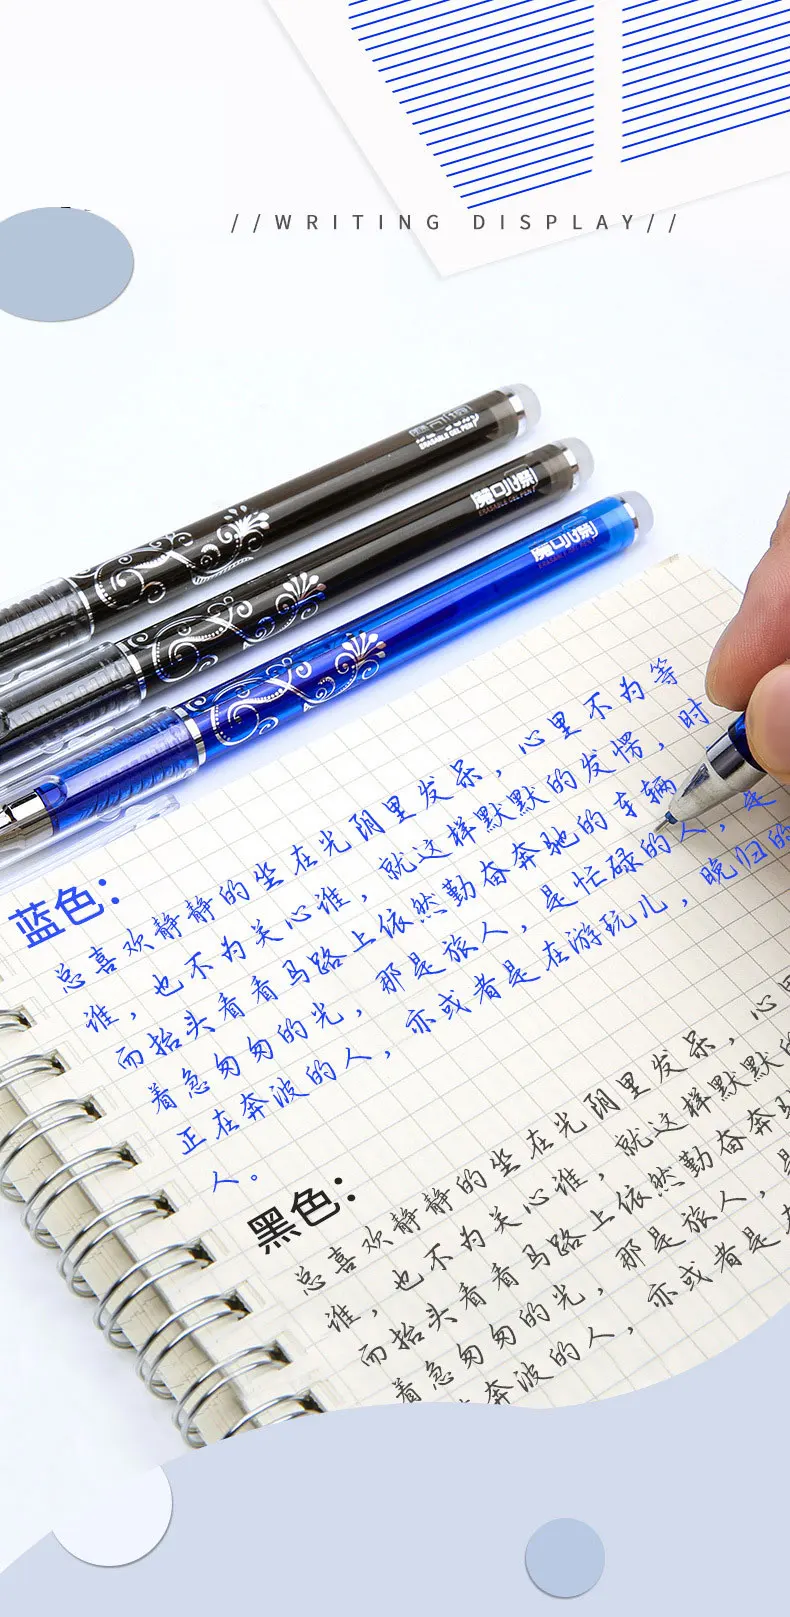 //WRITING DISPLAY//
ERASABLE GEL PEN
ERASABLE GEL PEN
蓝色：
总喜欢静静的坐在光阴里发呆，心里不为等
谁，也不为关心谁，就这样默默的发愣，时
而抬头看看马路上依然勤奋奔驰的车辆
着急匆匆的光，那是旅人，是忙碌的人，是
正在奔波的人，亦或者是在游玩儿，晚归的
人。
黑色：
总喜欢静静的坐在光阴里发呆，心里
谁，也不为关心谁，就这样默默的
而抬头看看马路上依然勤奋奔驰
着急匆匆的光，那是旅人，是
奔波的人，亦或者是在